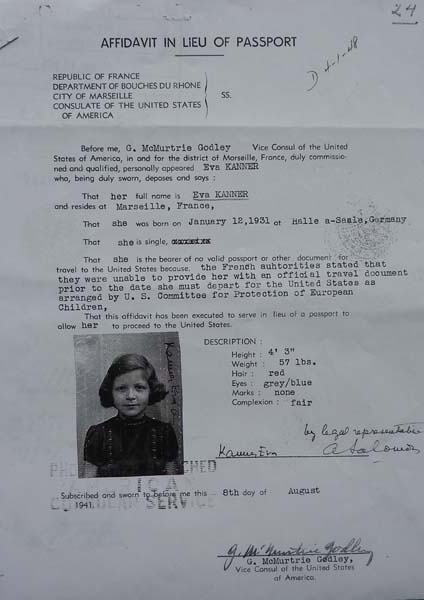 24
AFFIDAVIT IN LIEU OF PASSPORT
D 4-1-48
REPUBLIC OF FRANCE
DEPARTMENT OF BOUCHES DU RHONE
CITY OF MARSEILLE
CONSULATE OF THE UNITED STATES
OF AMERICA
SS.
Before me, G. McMurtrie Godley Vice Consul of the United
States of America, in and for the district of Marseille, France, duly commissio-
ned and qualified, personally appeared Eva KANNER
who, being duly sworn, deposes and says :
That her full name is Eva KANNER
and resides at Marseille, France,
That she was born on January 12,1931 at Halle a-Saale,Germany
That she is single,
That she is the bearer of no valid passport or other document for
travel to the United States because. the French auhtorities stated that
they were unable to provide her with an official travel document
prior to the date she must depart for the United States as
arranged by U. S. Committee for Protection of European
Children,
That this affidavit has been executed to serve in lieu of a passport to
allow her to proceed to the United States.
DESCRIPTION :
Height : 4' 3"
Weight : 57 lbs.
Hair : red
Eyes : grey/blue
Marks : none
Complexion : fair
Kanner Eva
by legal representative
Kanner, Eva
Subscribed and sworn to before me this 8th day of August
1941.
SERVICE
G. McMurtrie Godley
G. McMurtrie Godley,
Vice Consul of the United States
of America.